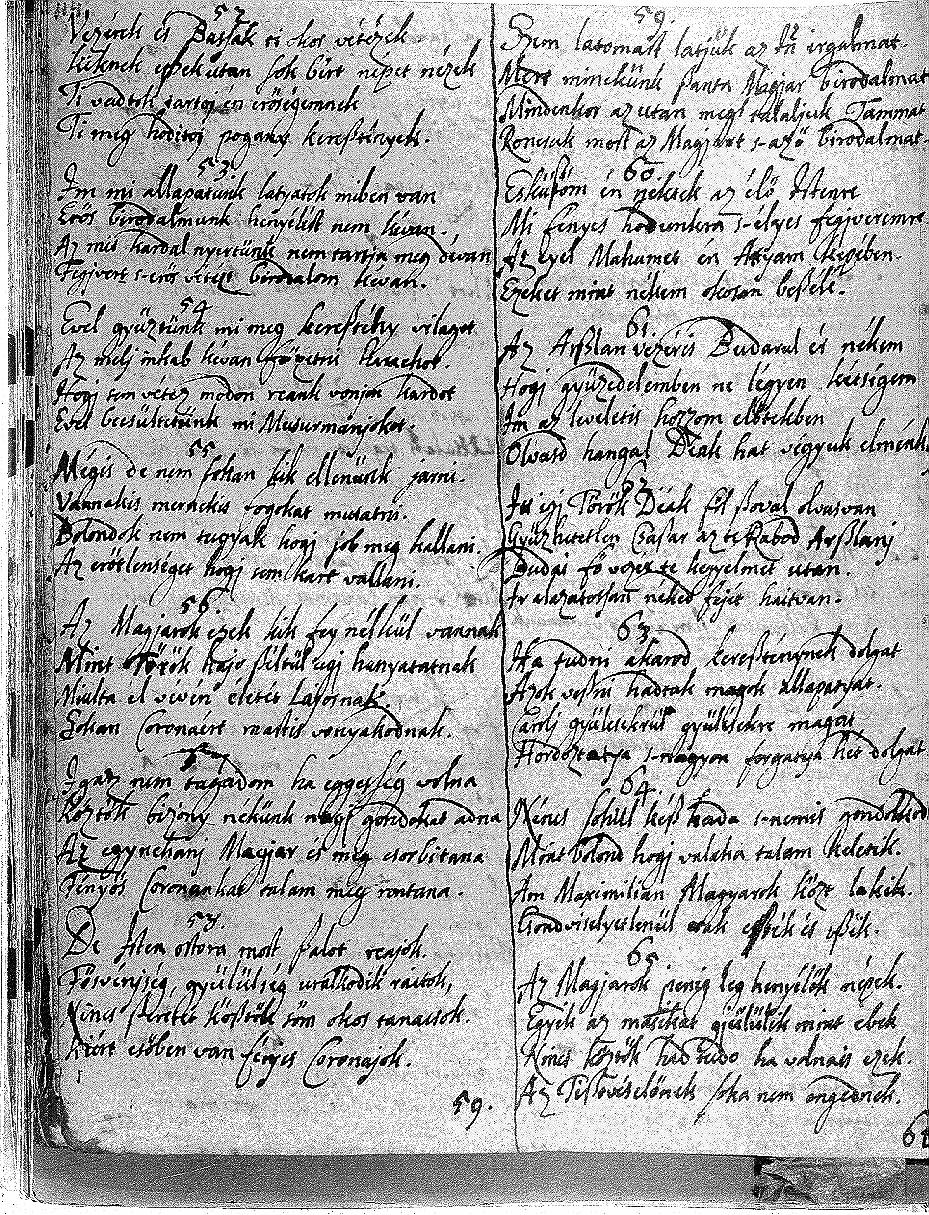 52.
Vezerek es Bassak es okos vitézek
kiknek ezek utan sok birt népet nézek
Ti vadtok
Ti meg hoditoi pogany keresztények.
53.
Im mi allapatunk latyatok miben van
Erős birodalmunk henyélést nem kévan.
Az mit kardal nyertünk nem tartja meg dévan
Fegjvert s-erős vitézt birodalom kévan.
54
Evel gyüztünk mi meg keresztény vilagot
Az melj inkab kévan
Hogj sem vitéz modon reank vonjon kardot
Evel becsüstetünk mi Musurmanjokot.
55
Mégis de nem sokan kik ellenünk jarni.
Vannakis meraekis fogokat mutatni.
Bolondok nem tugyak hogj job meg hallani.
Az erőtlenséget hogj sem kart vallani.
56.
Az Magjarok ezek kik fej nélkül vannak
Mint Török hajo széltül ugj hanyatatnak
Miulta el vévén életét Lajosnak.
Sokan Coronaért mastis vonyakodnak.
57
Igaz nem tagadom ha eggesség volna
Közötök bizony nékünk nagj gondokat adna
Az egynehanj Magjar es meg csorbitana
Fényős Coronankat talam meg rontana.
58.
De Isten ostora most szalot reajok.
Fösvénység, gyülülség uralkodik raitok,
Nincs szeretet köztök söm okos tanacsok.
Azért esőben van fényes Coronajok.
59.
59.
Szem latomást latjuk az Ur irgalmat.
Mert minekünk szanta Magjar birodalmat
Mindenkor az utan megi talaljuk Tammat
Roncsuk most az Magjart s-az ő birodalmat.
60.
Esküszöm én néktek az élő Istenre
Mi fényes holdunkra s-élyes fegjveremre
Az eyel Mahumet én Atyam képében.
Ezeket mint nékem okosan beszélé.
61.
Az Arszlan vezéris Budarul ir nékem
Hogj gyüzedelemben ne légyen kétségem
Im az leveletis hozzom előtökben
Olvasd hangal Deak hat végyuk elménk
62
Igj Török Deak fel szoval olvasvan
Gyüzhetetlen Csaszar az te szabod Arszlanj
Budai fő vezer te kegyelmet utan.
Ir alazatosan neked fejet haitvan.
63.
Ha tudni akarod kereszténynek dolgat
Azok veszni hadtak magok allapatjat.
Caroli gyülésekrül gyülésekre magat
Hordoztatya s-nagyon forgatya hét dolgat
64.
Nincs sohul kész hada s-nemis gondolkod
Mint bolond hogj valaha talam keletik.
Am Maximilian Magyarok közt lakik.
Gondviselyetlenül csak eszik és iszik.
65
Az Magjarok penig leg henyélők népek.
Egyik az masikat gjülülik mint ebek
Nincs köztök had tudo ha volnais ezek
Az Tisztviselőnek soha nem engednek.